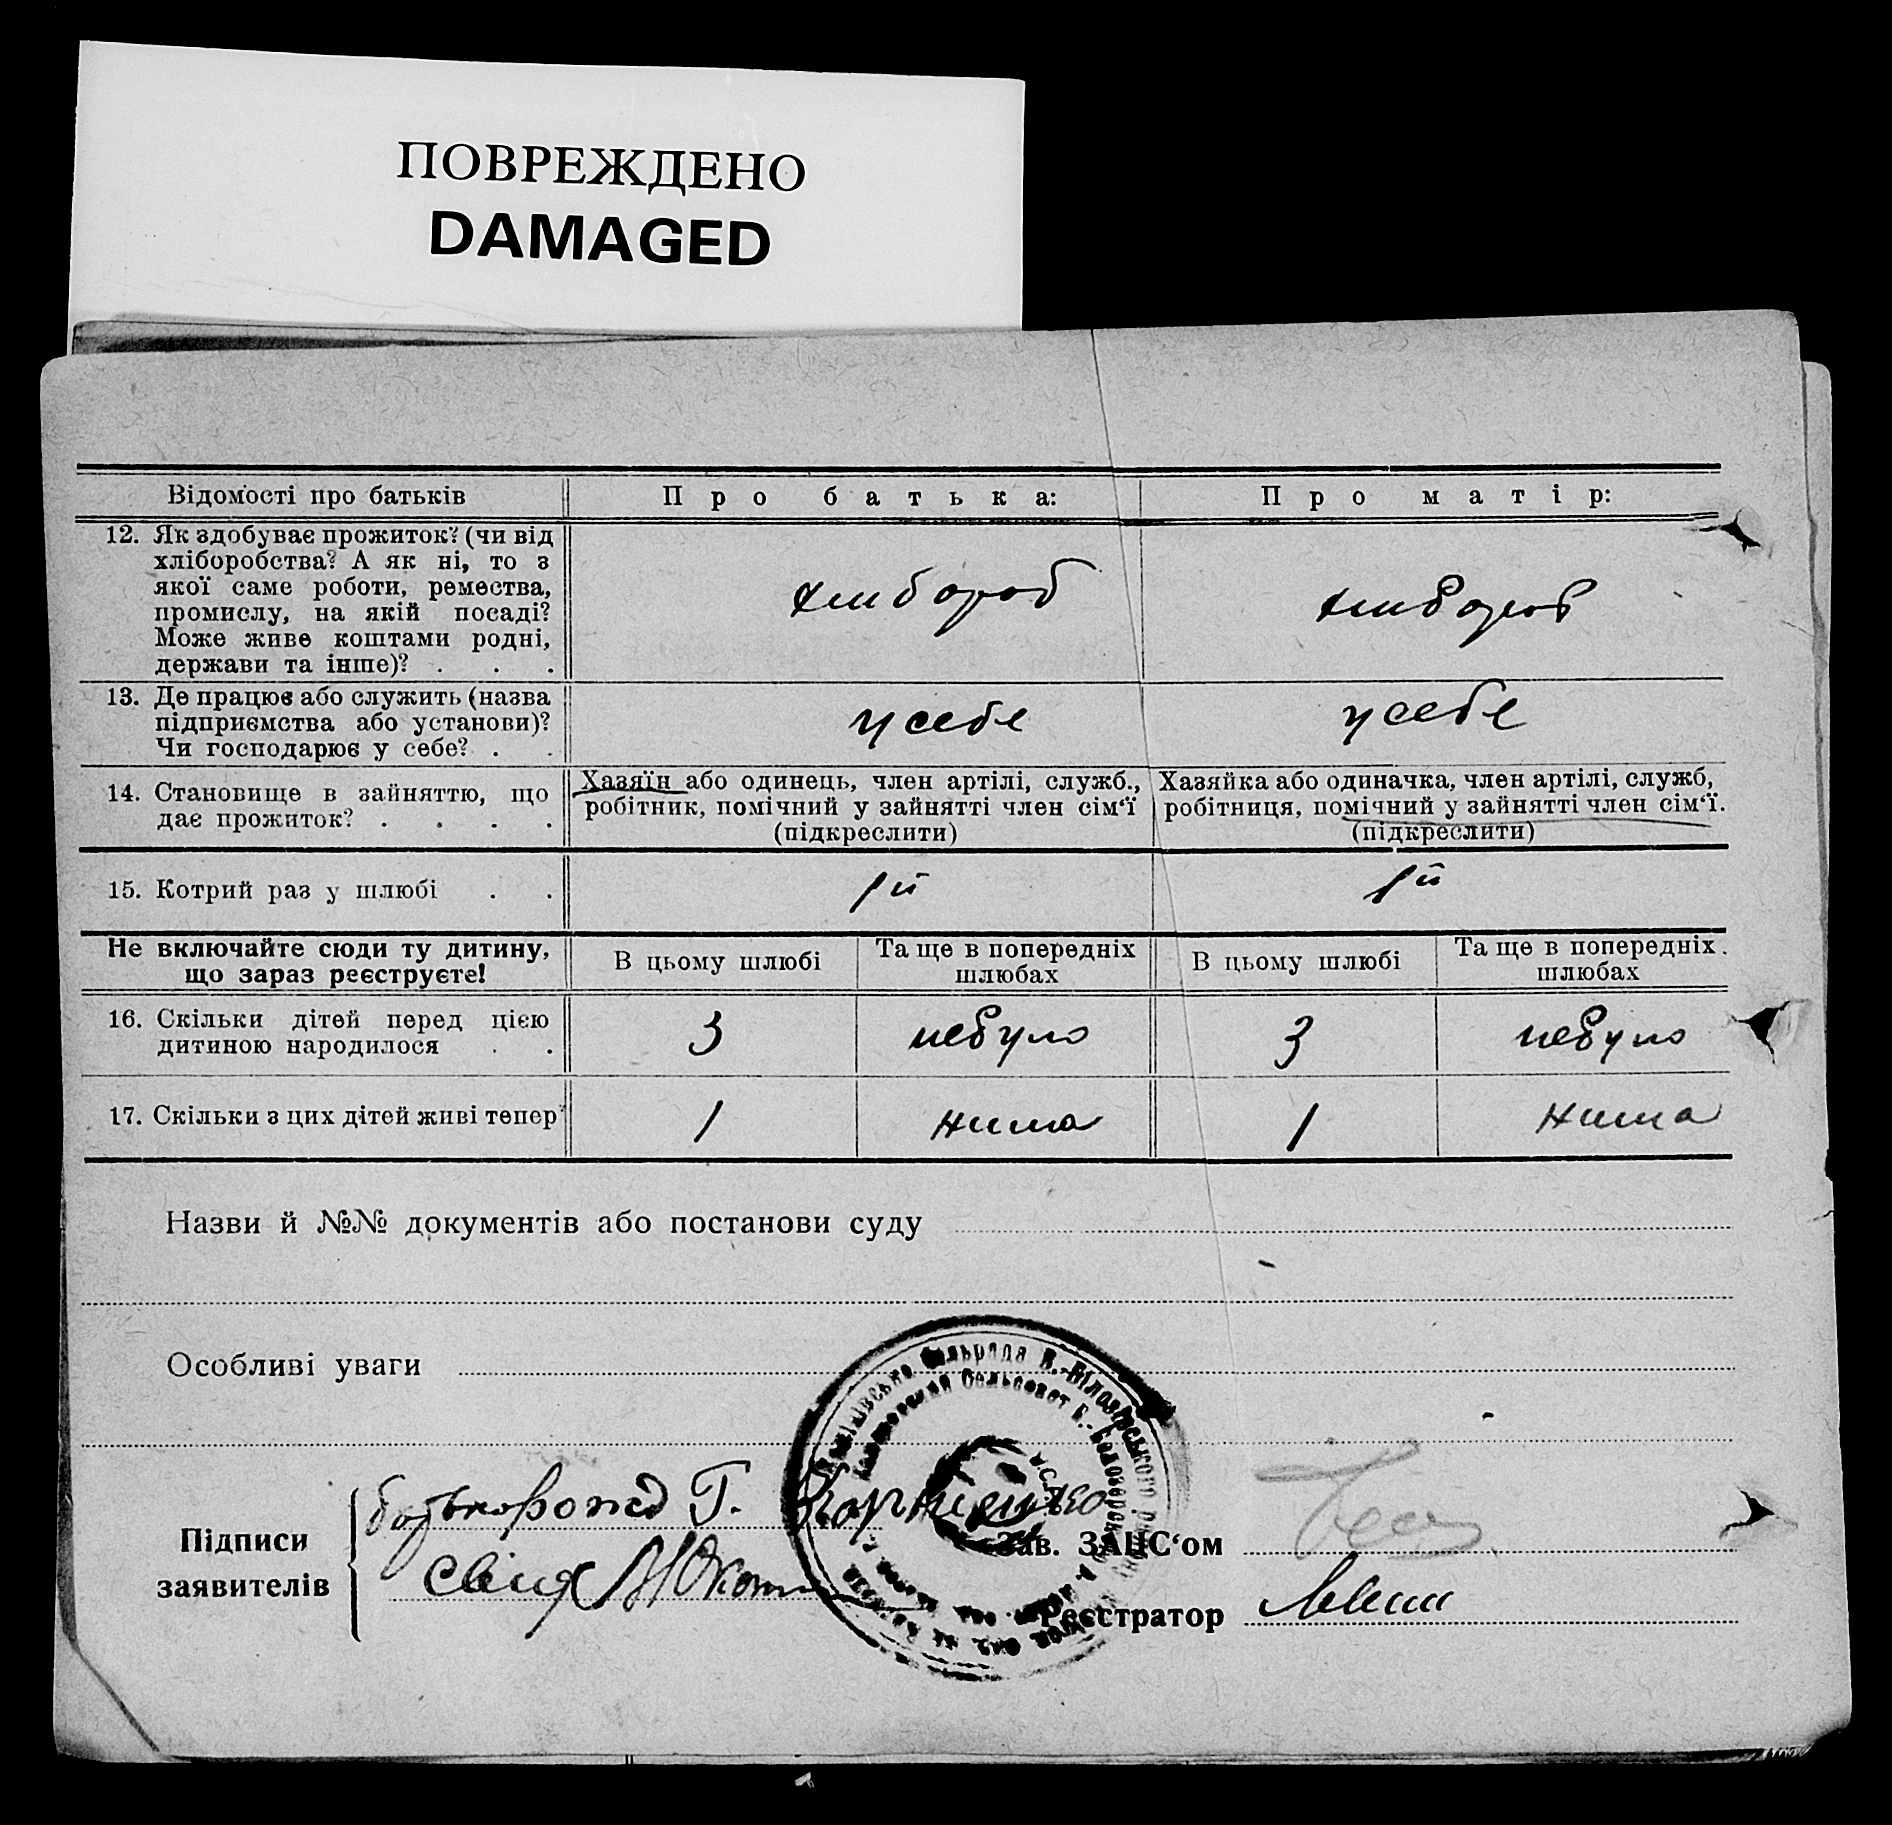 ПОВРЕЖДЕНО
DAMAGED
Відомості про батьків
Про батька:
Про матір:
12. Як здобуває прожиток? (чи від
хліборобства? А як ні, то з
якої саме роботи, ремества,
промислу, на якій посаді?
Може живе коштами родні,
держави та інше)? . . .
хлибороб
хлибороб
13. Де працює або служить (назва
підприємства або установи)?
Чи господарює у себе? . .
у себе
у себе
14. Становище в зайняттю, що
дає прожиток? . . . .
Хазяїн або одинець, член артілі, служб.,
робітник, помічний у зайнятті член сім‘ї
(підкреслити)
Хазяйка або одиначка, член артілі, служб,
робітниця, помічний у зайнятті член сім‘ї.
(підкреслити)
15. Котрий раз у шлюбі . .
1й
1й
Не включайте сюди ту дитину,
що зараз реєструєте!
В цьому шлюбі
Та ще в попередніх
шлюбах
В цьому шлюбі
Та ще в попередніх
шлюбах
16. Скільки дітей перед цією
дитиною народилося . .
3
небуло
3
небуло
17. Скільки з цих дітей живі тепер?
1
нима
1
нима
Назви й №№ документів або постанови суду
Особливі уваги
Сільрада В.-Білозірського
Сельсовет Б.-Белозерск
Підписи
заявителів
Г. Корниенко
Зав. ЗАГС‘ом
Реєстратор